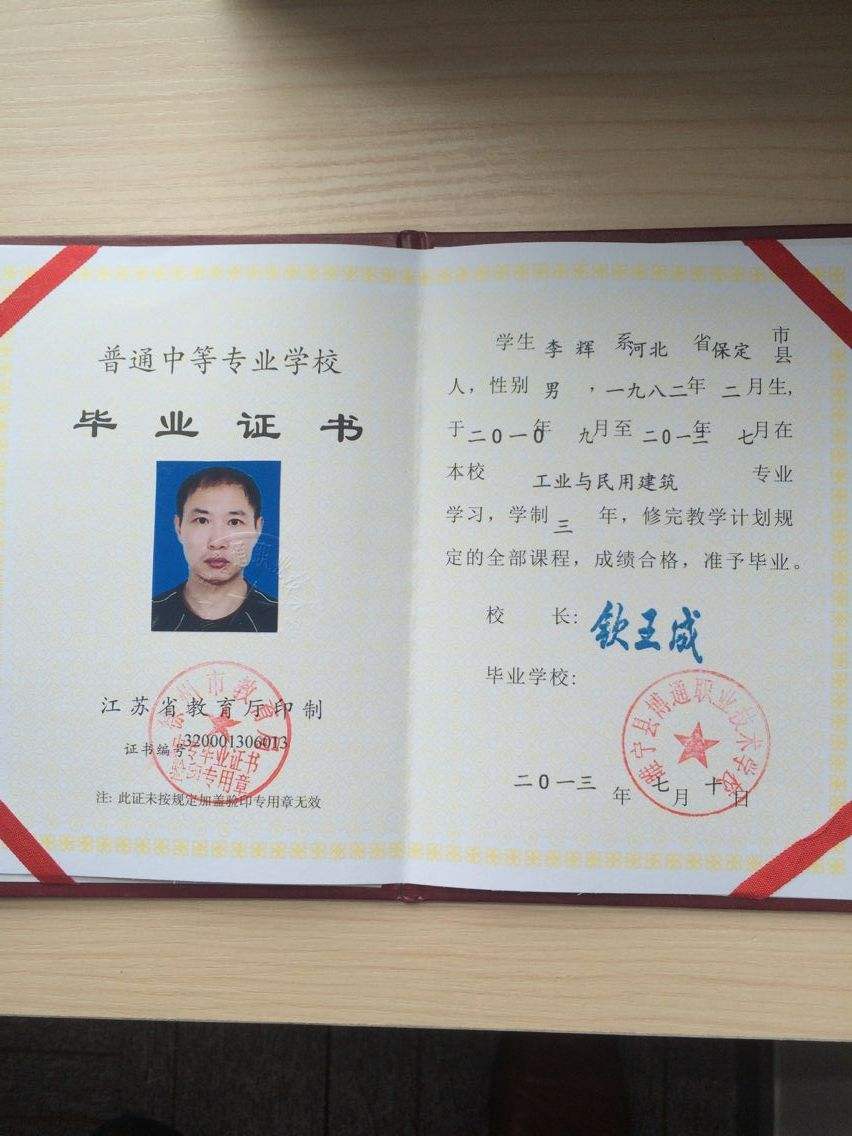 普通中等专业学校
毕业证书
江苏省教育厅印制
证书编号320001306013
市教育局
中专毕业证书
验印专用章
注: 此证未按规定加盖验印专用章无效
学生 李辉 系河北 省保定 市县
人，性别 男 ，一九八二年 二月生,
于二〇一〇年 九月至 二〇一三年 七月在
本校 工业与民用建筑 专业
学习，学制 三 年，修完教学计划规
定的全部课程，成绩合格，准予毕业。
校 长: 钦王成
毕业学校:
睢宁县博通职业技术学校
二〇一三年 七月 十日